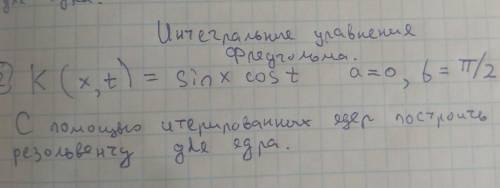 Интегральные уравнения
Фредгольма.
2) K(x,t) = sinx cost a=0, b=π/2
С помощью итерированных ядер построить
резольвенту для ядра.